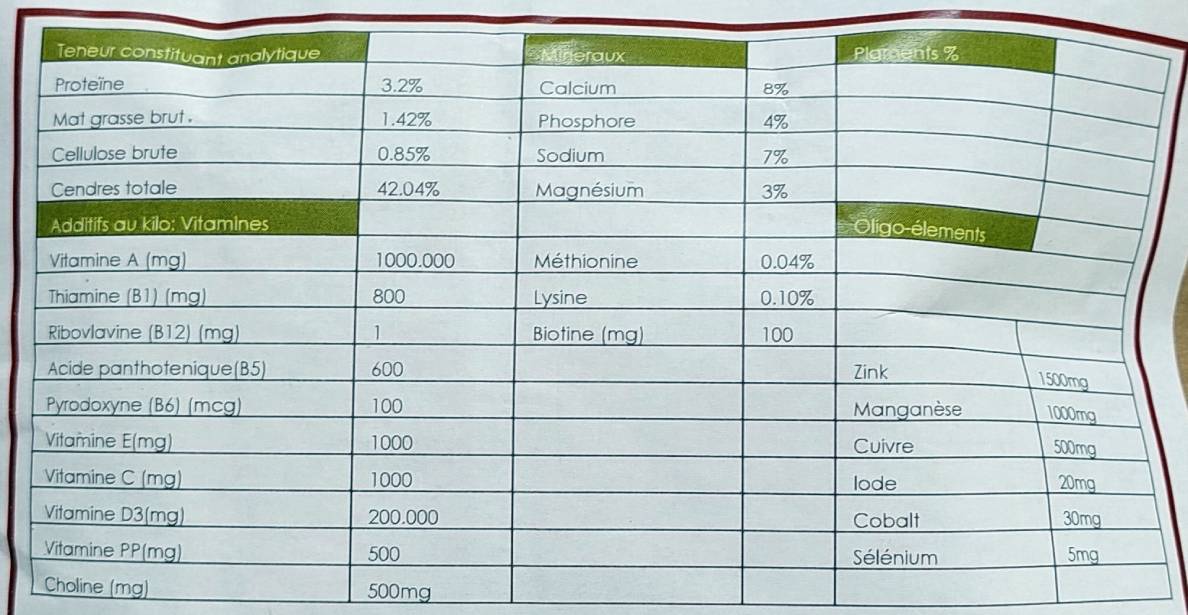 Teneur constituant analytique Mineraux Pigments %
Proteïne 3.2% Calcium 8%
Mat grasse brut. 1.42% Phosphore 4%
Cellulose brute 0.85% Sodium 7%
Cendres totale 42.04% Magnésium 3%
Additifs au kilo: Vitamines Oligo-élements
Vitamine A (mg) 1000.000 Méthionine 0.04%
Thiamine (B1) (mg) 800 Lysine 0.10%
Ribovlavine (B12) (mg) 1 Biotine (mg) 100
Acide panthotenique(B5) 600 Zink 1500mg
Pyrodoxyne (B6) (mcg) 100 Manganèse 1000mg
Vitamine E(mg) 1000 Cuivre 500mg
Vitamine C (mg) 1000 Iode 20mg
Vitamine D3(mg) 200.000 Cobalt 30mg
Vitamine PP(mg) 500 Sélénium 5mg
Choline (mg) 500mg